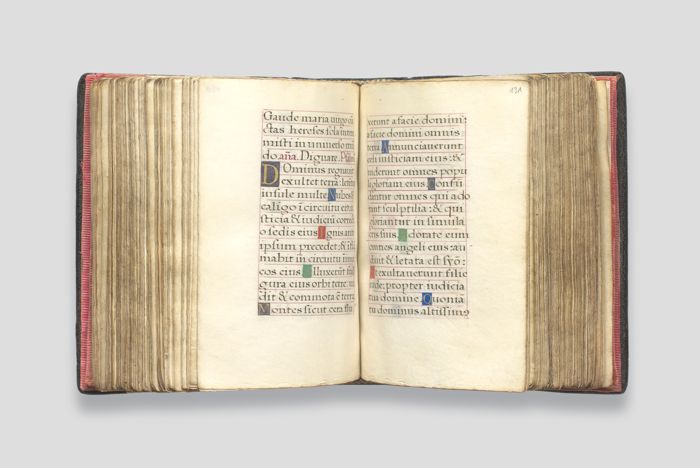 Gaude maria uirgo cū
ctas hereses sola intere
misti in uniuerso mū
do. aña. Dignare. Psal
Dominus regnauit
exultet terra: letētur
insule multe. Nubes &
caligo ī circuitu eius iu
sticia & iudiciū correc
o sedis eius. Ignis ante
ipsum precedet: & ī fla
mabit in circuitu inimi
cos eius. Illuxerūt ful
gura eius orbi terre: ui
dit & commota ē terra
Montes sicut cera flu
131
xerunt a facie domini:
a facie domini omnis
terra. Annunciauerunt
celi iusticiam eius: &
uiderunt omnes popu
li gloriam eius. Confū
dantur omnes qui ado
rant sculptilia: & qui
gloriantur in simula
cris suis. Adorate eum
omnes angeli eius: au
diuit & letata est syō:
Et exultauerunt filie
iude: propter iudicia
tua domine. Quoniā
tu dominus altissimus